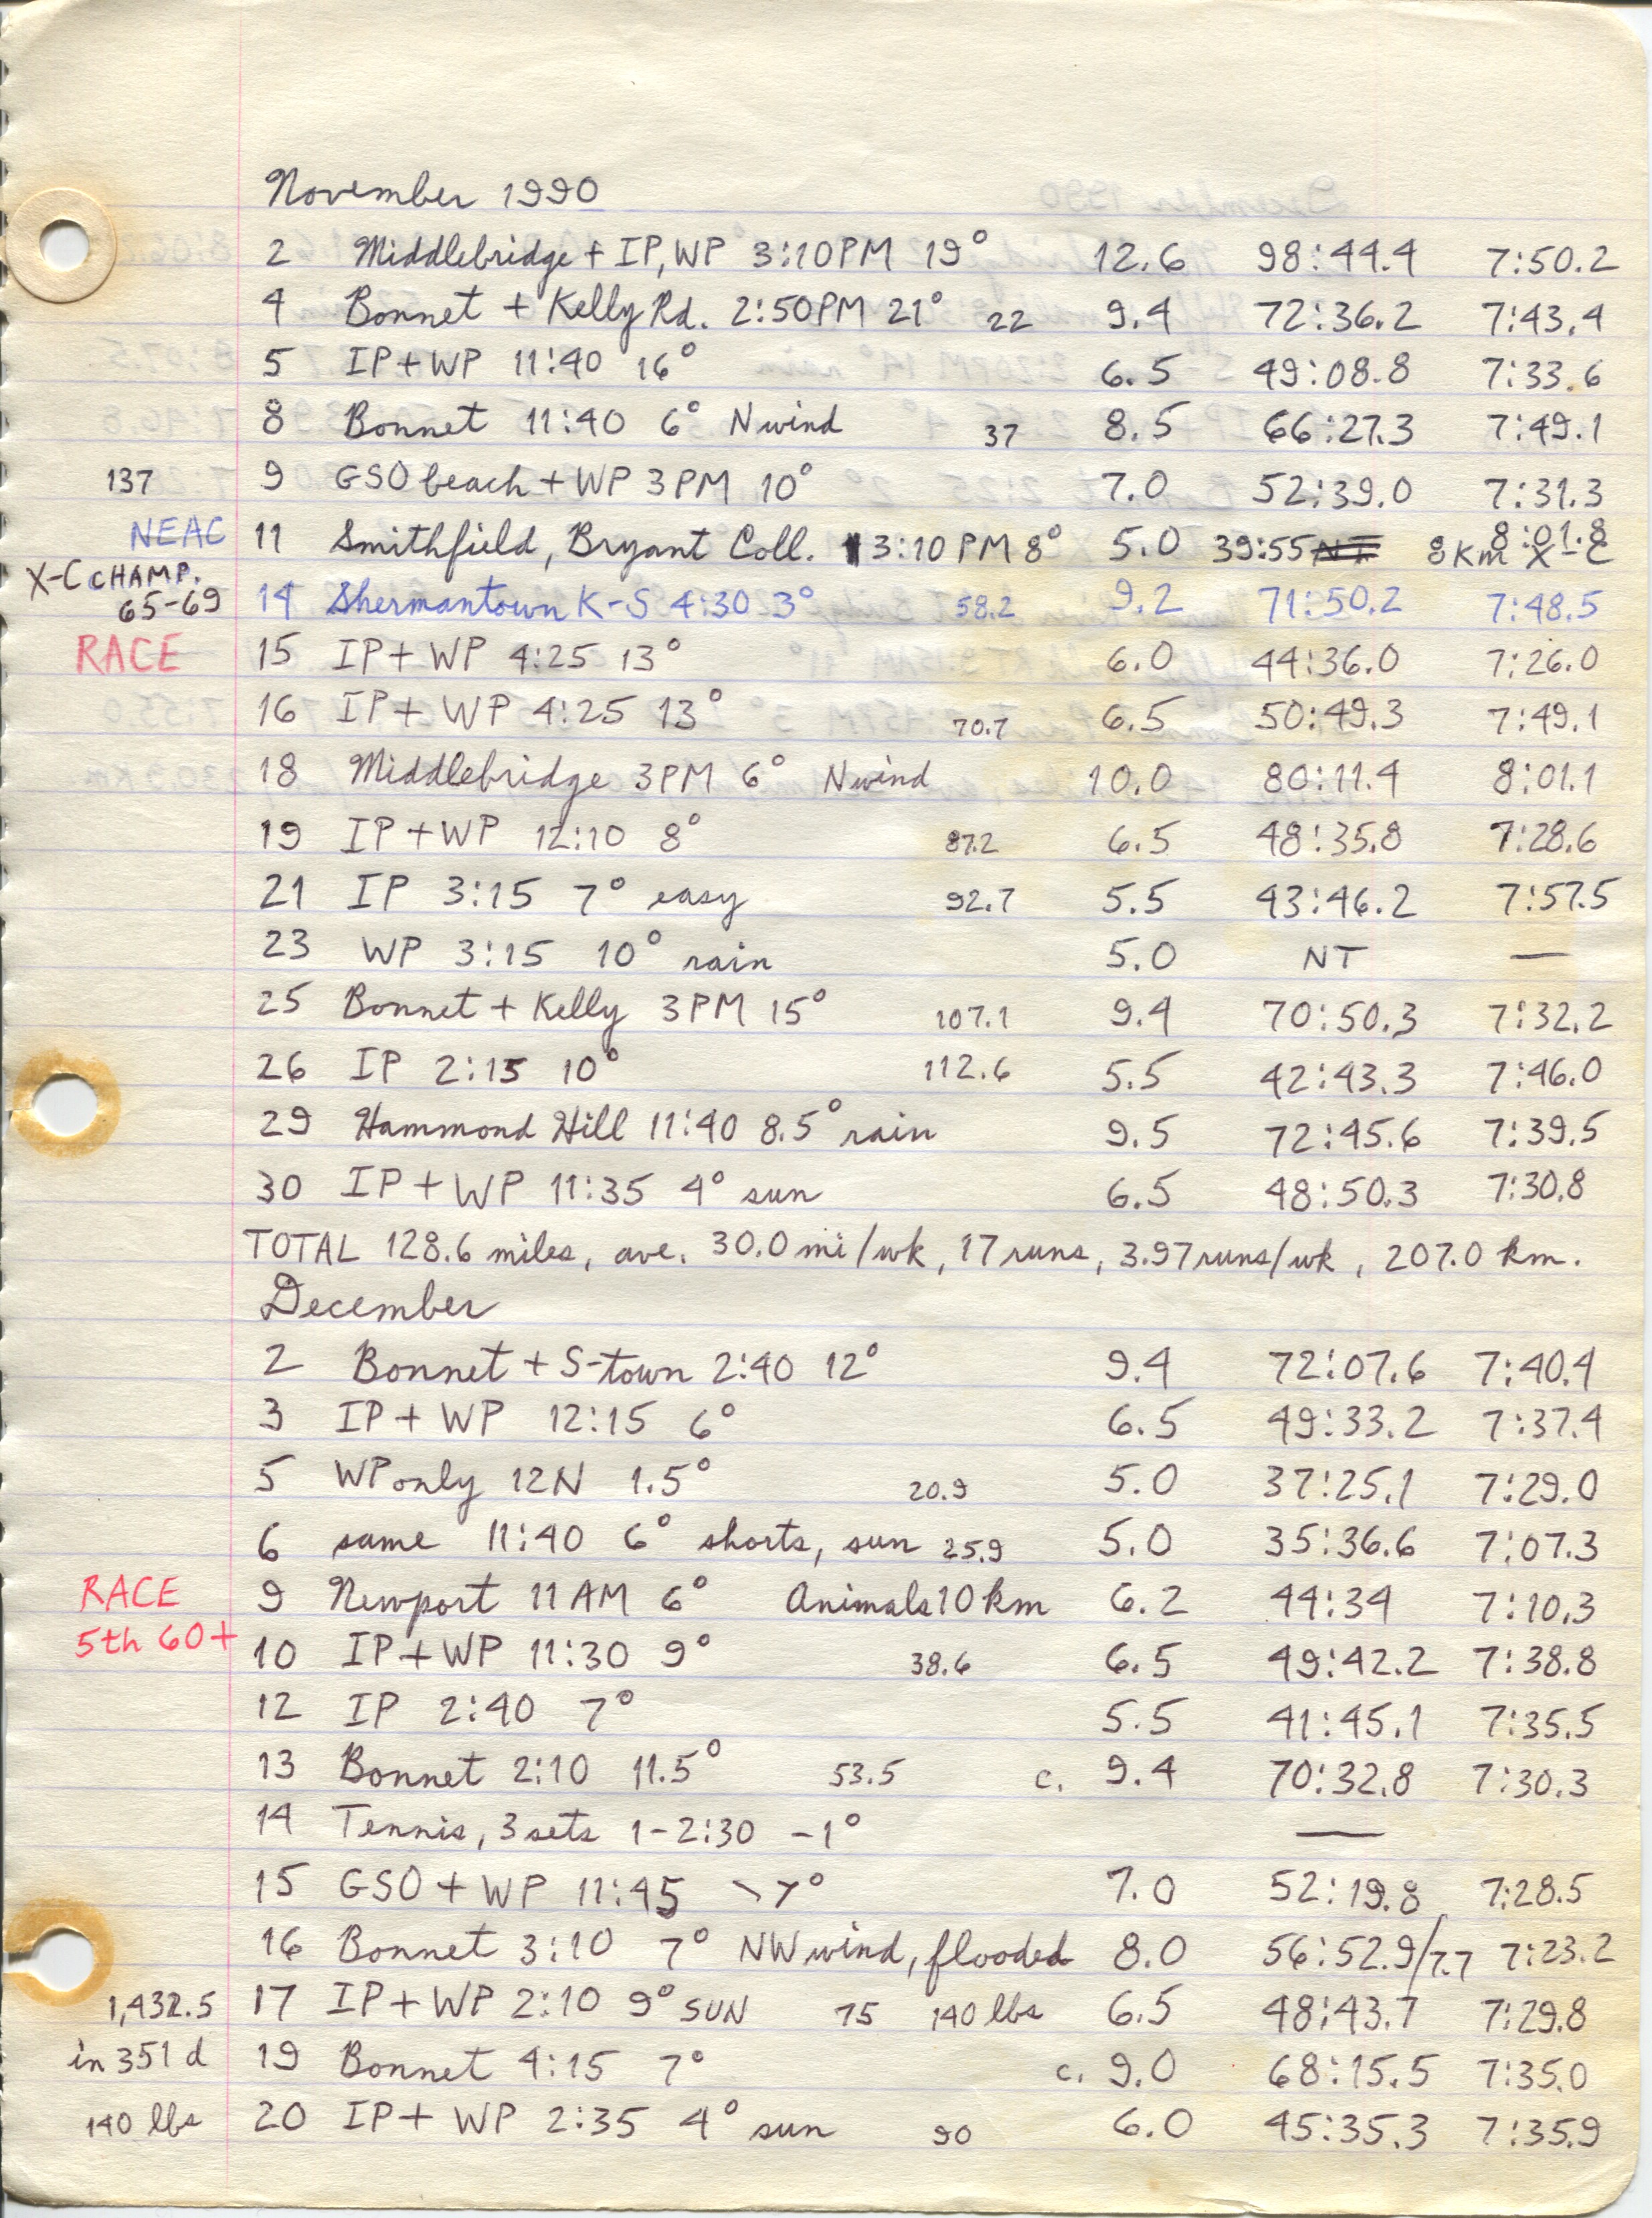 November 1990
2 Middlebridge + IP, WP 3:10PM 19° 12.6 98:44.4 7:50.2
4 Bonnet + Kelly Rd. 2:50PM 21° 22 9.4 72:36.2 7:43.4
5 IP+WP 11:40 16° 6.5 49:08.8 7:33.6
8 Bonnet 11:40 6° N wind 37 8.5 66:27.3 7:49.1
137 9 GSO beach + WP 3PM 10° 7.0 52:39.0 7:31.3
NEAC 11 Smithfield, Bryant Coll. 3:10 PM 8° 5.0 39:55 8 Km X-C 8:01.8
X-C CHAMP.
65-69 14 Shermantown K-S 4:30 3° 58.2 9.2 71:50.2 7:48.5
RACE 15 IP+ WP 4:25 13° 6.0 44:36.0 7:26.0
16 IP+ WP 4:25 13° 70.7 6.5 50:49.3 7:49.1
18 Middlebridge 3PM 6° N wind 10.0 80:11.4 8:01.1
19 IP+WP 12:10 8° 87.2 6.5 48:35.8 7:28.6
21 IP 3:15 7° easy 92.7 5.5 43:46.2 7:57.5
23 WP 3:15 10° rain 5.0 NT —
25 Bonnet + Kelly 3PM 15° 107.1 9.4 70:50.3 7:32.2
26 IP 2:15 10° 112.6 5.5 42:43.3 7:46.0
29 Hammond Hill 11:40 8.5° rain 9.5 72:45.6 7:39.5
30 IP+WP 11:35 4° sun 6.5 48:50.3 7:30.8
TOTAL 128.6 miles, ave. 30.0 mi/wk, 17 runs, 3.97 runs/wk, 207.0 km.
December
2 Bonnet + S-town 2:40 12° 9.4 72:07.6 7:40.4
3 IP+ WP 12:15 6° 6.5 49:33.2 7:37.4
5 WP only 12N 1.5° 20.9 5.0 37:25.1 7:29.0
6 same 11:40 6° shorts, sun 25.9 5.0 35:36.6 7:07.3
RACE 9 Newport 11 AM 6° Animals 10 km 6.2 44:34 7:10.3
5th 60+ 10 IP+WP 11:30 9° 38.6 6.5 49:42.2 7:38.8
12 IP 2:40 7° 5.5 41:45.1 7:35.5
13 Bonnet 2:10 11.5° 53.5 c. 9.4 70:32.8 7:30.3
14 Tennis, 3 sets 1-2:30 -1° —
15 GSO + WP 11:45 7° 7.0 52:19.8 7:28.5
16 Bonnet 3:10 7° NW wind, flooded 8.0 56:52.9/7.7 7:23.2
1,432.5 17 IP+WP 2:10 9° SUN 75 140 lbs 6.5 48:43.7 7:29.8
in 351 d 19 Bonnet 4:15 7° c. 9.0 68:15.5 7:35.0
140 lbs 20 IP+ WP 2:35 4° sun 90 6.0 45:35.3 7:35.9